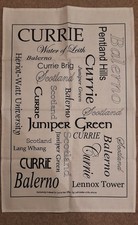 CURRIE
Water of Leith
Balerno
Currie Brig
Scotland
Pentland Hills
Balerno
Heriot-Watt University
Currie
Currie
Scotland
Balerno
JUNIPER GREEN
Scotland
Scotland
Lang Whang
Juniper Green
Currie
CURRIE
Balerno
Balerno
Lennox Tower